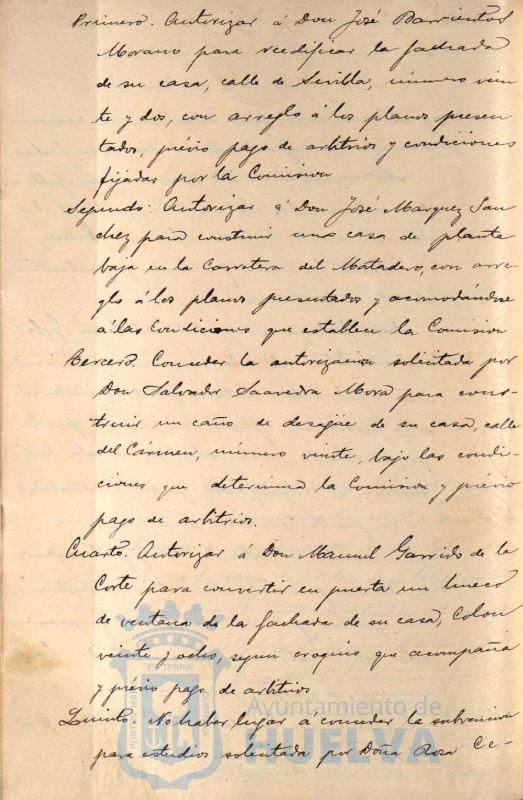 Primero. Autorizar á Don José Barrientos
Morano para reedificar la fachada
de su casa, calle de Sevilla, número vein
te y dos, con arreglo á los planos presen
tados, prévio pago de arbitrios y condiciones
fijadas por la Comision
Segundo: Autorizar á Don José Marquez San
chez para construir una casa de planta
baja en la Carretera del Matadero, con arre
glo á los planos presentados y acomodándose
á las condiciones que establece la Comision
Tercero. Conceder la autorizacion solicitada por
Don Salvador Saavedra Mora para cons-
truir un caño de desagüe de su casa, calle
del Cármen, número veinte, bajo las condi-
ciones que determina la Comision y prévio
pago de arbitrios.
Cuarto. Autorizar á Don Manuel Garrido de la
Corte para convertir en puerta un hueco
de ventana de la fachada de su casa, Colon
veinte y ocho, segun croquis que acompaña
y prévio pago de arbitrios
Quinto. No haber lugar á conceder la subvencion
para estudios solicitada por Doña Rosa Ce-
Ayuntamiento de
HUELVA